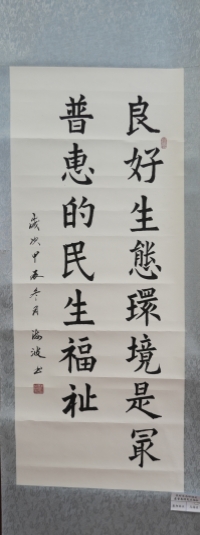 良好生態環境是冣
普惠的民生福祉
歲次甲辰冬月海波书